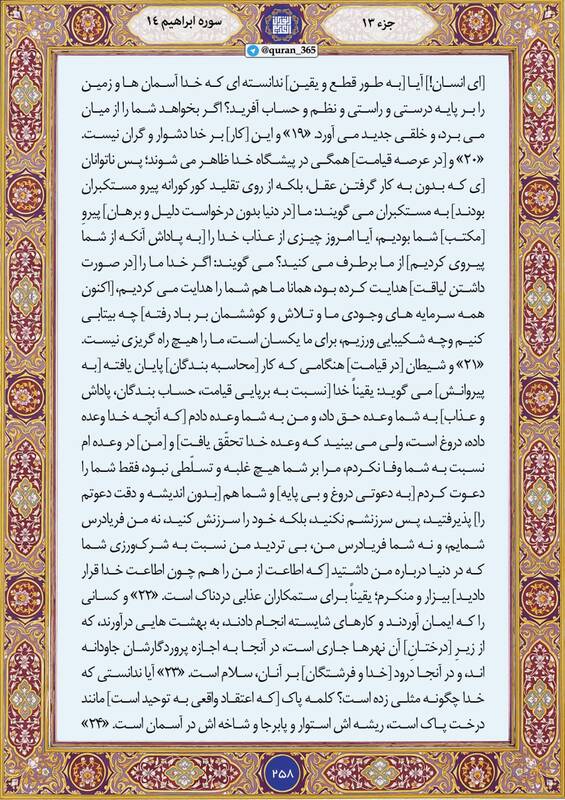 جزء ۱۳
سوره ابراهیم ۱٤
@quran_365
[ای انسان!] آیا [به طور قطع و یقین] ندانسته ای که خدا آسمان ها و زمین
را بر پایه درستی و راستی و نظم و حساب آفرید؟ اگر بخواهد شما را از میان
می برد، و خلقی جدید می آورد. «۱۹» و این [کار] بر خدا دشوار و گران نیست.
«۲۰» و [در عرصه قیامت] همگی در پیشگاه خدا ظاهر می شوند؛ پس ناتوانان
[ی که بدون به کار گرفتن عقل، بلکه از روی تقلید کورکورانه پیرو مستکبران
بودند] به مستکبران می گویند: ما [در دنیا بدون درخواست دلیل و برهان] پیروِ
[مکتب] شما بودیم، آیا امروز چیزی از عذاب خدا را [به پاداش آنکه از شما
پیروی کردیم] از ما برطرف می کنید؟ می گویند: اگر خدا ما را [در صورت
داشتن لیاقت] هدایت کرده بود، همانا ما هم شما را هدایت می کردیم، [اکنون
همه سرمایه های وجودی ما و تلاش و کوششمان بر باد رفته] چه بیتابی
کنیم وچه شکیبایی ورزیم، برای ما یکسان است، ما را هیچ راه گریزی نیست.
«۲۱» و شیطان [در قیامت] هنگامی که کار [محاسبه بندگان] پایان یافته [به
پیروانش] می گوید: یقیناً خدا [نسبت به برپایی قیامت، حساب بندگان، پاداش
و عذاب] به شما وعده حق داد، و من به شما وعده دادم [که آنچه خدا وعده
داده، دروغ است، ولی می بینید که وعده خدا تحقّق یافت] و [من] در وعده ام
نسبت به شما وفا نکردم، مرا بر شما هیچ غلبه و تسلّطی نبود، فقط شما را
دعوت کردم [به دعوتی دروغ و بی پایه] و شما هم [بدون اندیشه و دقت دعوتم
را] پذیرفتید، پس سرزنشم نکنید، بلکه خود را سرزنش کنید، نه من فریادرس
شمایم، و نه شما فریادرس من، بی تردید من نسبت به شرک‌ورزی شما
که در دنیا درباره من داشتید [که اطاعت از من را هم چون اطاعت خدا قرار
دادید] بیزار و منکرم؛ یقیناً برای ستمکاران عذابی دردناک است. «۲۲» و کسانی
را که ایمان آوردند و کارهای شایسته انجام دادند، به بهشت هایی درآورند، که
از زیرِ [درختانِ] آن نهرها جاری است، در آنجا به اجازه پروردگارشان جاودانه
اند، و در آنجا درود [خدا و فرشتگان] بر آنان، سلام است. «۲۳» آیا ندانستی که
خدا چگونه مثلی زده است؟ کلمه پاک [که اعتقاد واقعی به توحید است] مانند
درخت پاک است، ریشه اش استوار و پابرجا و شاخه اش در آسمان است. «۲۴»
۲۵۸